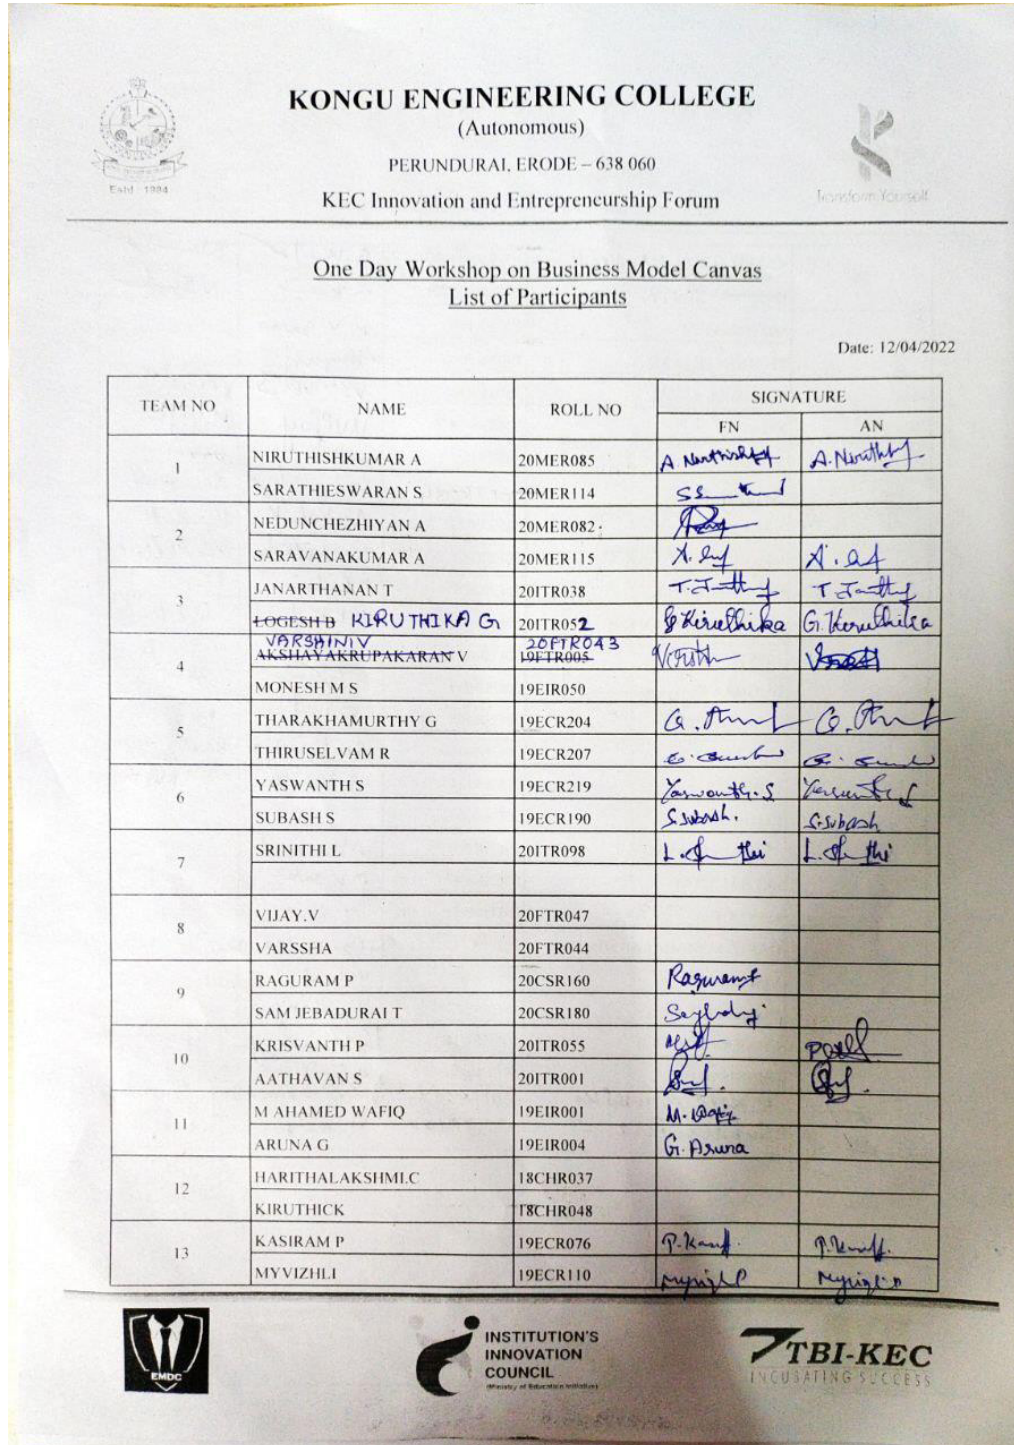 KONGU ENGINEERING COLLEGE
(Autonomous)
PERUNDURAI, ERODE – 638 060
KEC Innovation and Entrepreneurship Forum
Estd : 1984
Transform Yourself
One Day Workshop on Business Model Canvas
List of Participants
Date: 12/04/2022
TEAM NO NAME ROLL NO SIGNATURE
FN AN
1 NIRUTHISHKUMAR A 20MER085
SARATHIESWARAN S 20MER114
2 NEDUNCHEZHIYAN A 20MER082
SARAVANAKUMAR A 20MER115
3 JANARTHANAN T 20ITR038
LOGESH B KIRUTHIKA G 20ITR052 G Kiruthika G. Kiruthika
VARSHINI V 20FTR043
4 AKSHAYAKRUPAKARAN V 19FTR005
MONESH M S 19EIR050
5 THARAKHAMURTHY G 19ECR204
THIRUSELVAM R 19ECR207
6 YASWANTH S 19ECR219 Yaswanth. S
SUBASH S 19ECR190 S.Subash. S.Subash
7 SRINITHI L 20ITR098
8 VIJAY.V 20FTR047
VARSSHA 20FTR044
9 RAGURAM P 20CSR160
SAM JEBADURAI T 20CSR180
10 KRISVANTH P 20ITR055
AATHAVAN S 20ITR001
11 M AHAMED WAFIQ 19EIR001
ARUNA G 19EIR004 G. Aruna
12 HARITHALAKSHMI.C 18CHR037
KIRUTHICK 18CHR048
13 KASIRAM P 19ECR076
MYVIZHLI 19ECR110
EMDC
INSTITUTION'S
INNOVATION
COUNCIL
(Ministry of Education Initiative)
TBI-KEC
INCUBATING SUCCESS